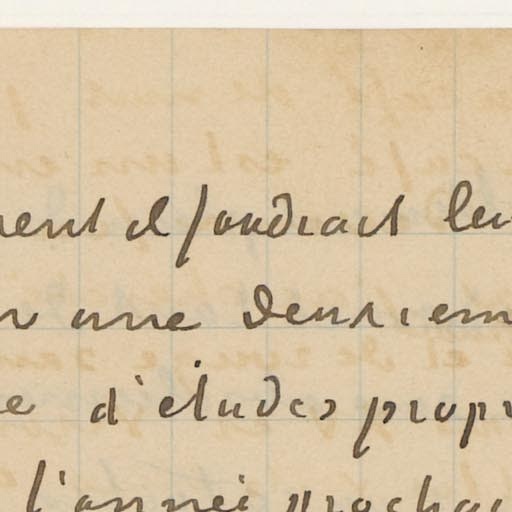 ent il faudrait leu
une deuxiem
e d'études propr
l'année prochai